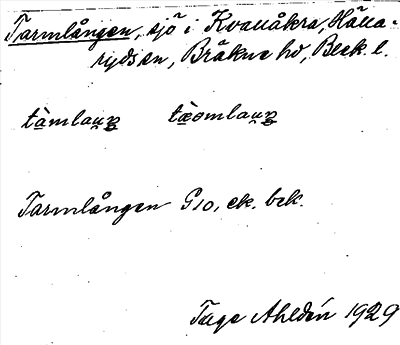 Tarmlången, sjö i Kvallåkra, Halla-
ryds sn, Bräkne hd, Blek. l.
Tarmlången G10, ek. bek.
Tage Ahldén 1929